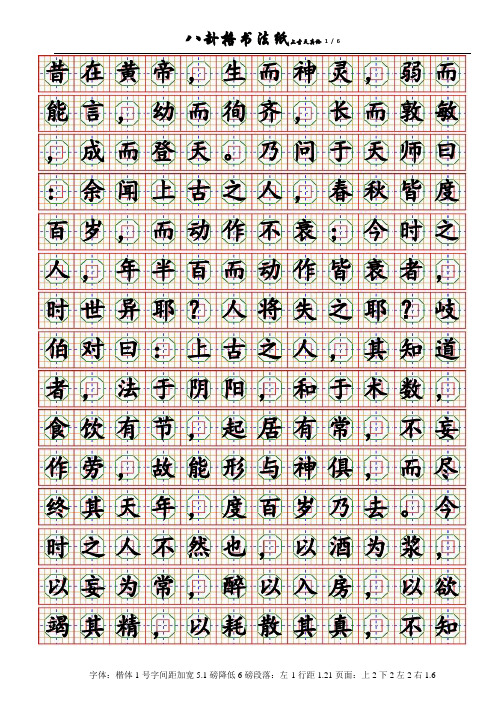 八卦楷书法纸上古天真论 1 / 6
昔在黄帝，生而神灵，弱而
能言，幼而徇齐，长而敦敏
，成而登天。乃问于天师曰
：余闻上古之人，春秋皆度
百岁，而动作不衰；今时之
人，年半百而动作皆衰者，
时世异耶？人将失之耶？岐
伯对曰：上古之人，其知道
者，法于阴阳，和于术数，
食饮有节，起居有常，不妄
作劳，故能形与神俱，而尽
终其天年，度百岁乃去。今
时之人不然也，以酒为浆，
以妄为常，醉以入房，以欲
竭其精，以耗散其真，不知
字体：楷体1号字间距加宽5.1磅降低6磅段落：左-1行距1.21页面：上2下2左2右1.6